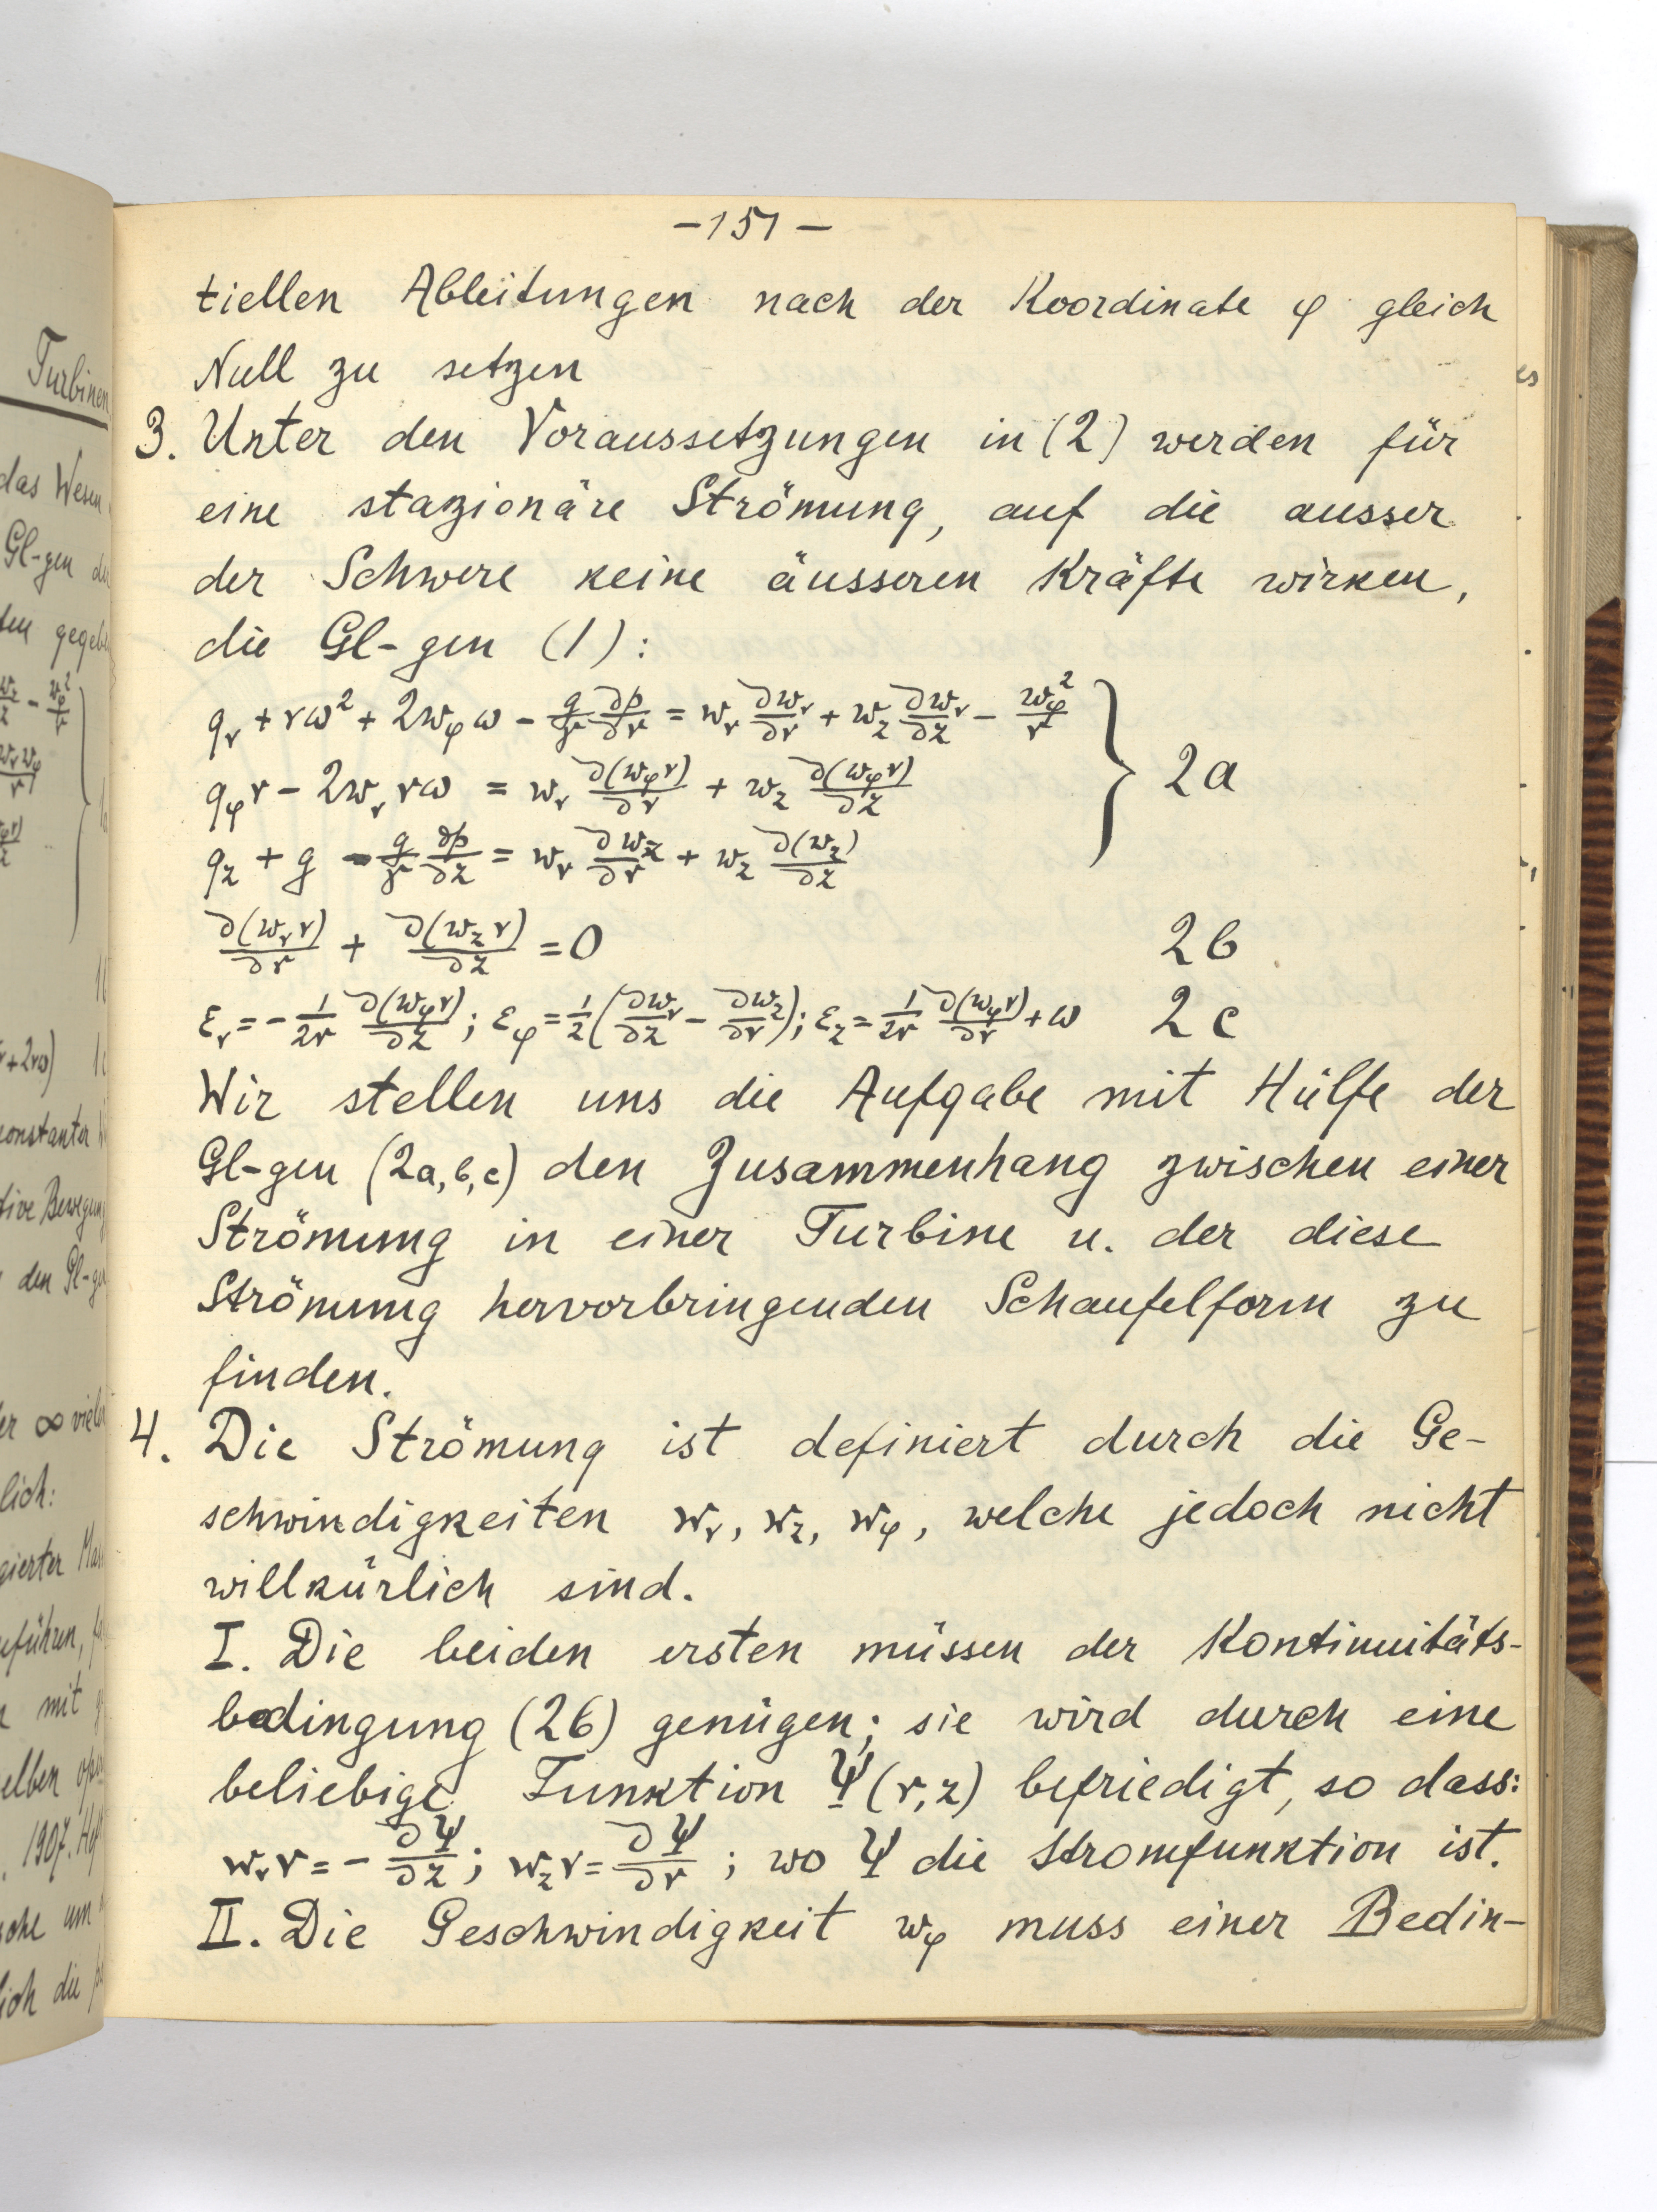 Turbinen
das Wesen
Gl-gen
-151-
tiellen Ableitungen nach der Koordinate φ gleich
Null zu setzen
3. Unter den Voraussetzungen in (2) werden für
eine stazionäre Strömung, auf die ausser
der Schwere keine äusseren Kräfte wirken,
die Gl-gen (1):
q_r + rω² + 2w_φ ω - g/γ ∂p/∂r = w_r ∂w_r/∂r + w_z ∂w_r/∂z - w_φ²/r
q_φ r - 2w_r rω = w_r ∂(w_φ r)/∂r + w_z ∂(w_φ r)/∂z } 2a
q_z + g - g/γ ∂p/∂z = w_r ∂w_z/∂r + w_z ∂(w_z)/∂z
∂(w_r r)/∂r + ∂(w_z r)/∂z = 0 2b
ε_r = - 1/2r ∂(w_φ r)/∂z; ε_φ = 1/2 (∂w_r/∂z - ∂w_z/∂r); ε_z = 1/2r ∂(w_φ r)/∂r + ω 2c
Wir stellen uns die Aufgabe mit Hülfe der
Gl-gen (2a,b,c) den Zusammenhang zwischen einer
Strömung in einer Turbine u. der diese
Strömung hervorbringenden Schaufelform zu
finden.
4. Die Strömung ist definiert durch die Ge-
schwindigkeiten w_r, w_z, w_φ, welche jedoch nicht
willkürlich sind.
I. Die beiden ersten müssen der Kontinuitäts-
bedingung (2b) genügen; sie wird durch eine
beliebige Funktion Ψ(r,z) befriedigt, so dass:
w_r r = - ∂Ψ/∂z; w_z r = ∂Ψ/∂r; wo Ψ die Stromfunktion ist.
II. Die Geschwindigkeit w_φ muss einer Bedin-